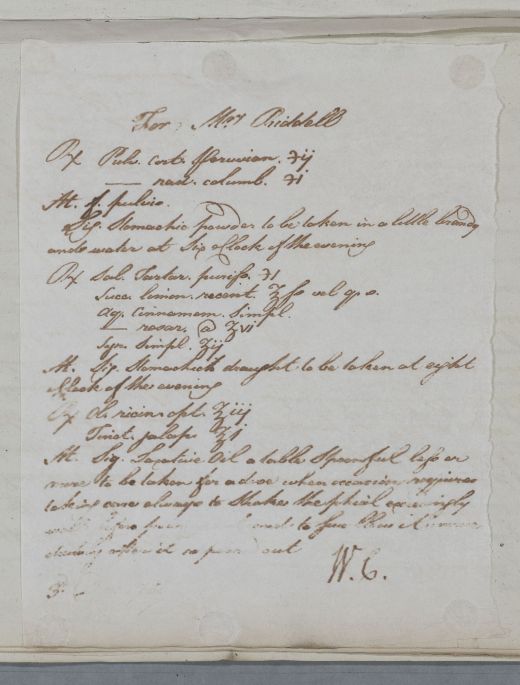 For Mrs Riddell
Rx Pulv. cort. Peruvian. ʒij
— rad. columb. ʒi
M. f. pulvis.
Sig. Stomachic powder to be taken in a little brandy
and water at Six o Clock of the evening
Rx Sal. Tartar. purifs. ʒi
Succ. limon. recent. ℥fs vel q. s.
Aq. Cinnamom. Simpl.
— rosar. a ℥vi
Syr. Simpl. ℥ij
M. Sig. Stomachick draught to be taken at eight
o Clock of the evening
Rx Ol. ricin. opt. ℥iij
Tinct. jalap. ℥j
M. Sig. Laxative Oil a table Spoonful less or
more to be taken for a dose when occasion requires
taking care always to Shake the phial exceedingly
well before and to
after it is out
W. C.